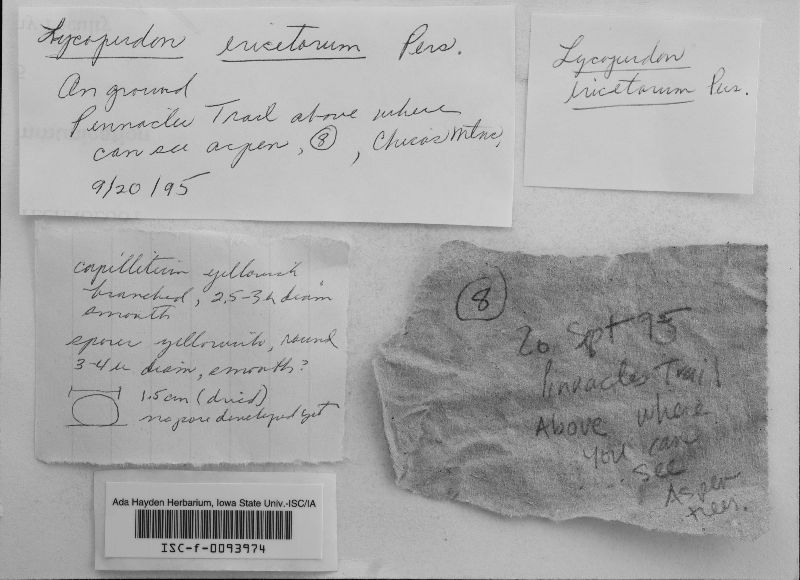 Lycoperdon ericetorum Pers.
On ground
Pennacles Trail above where
can see aspen, 8, Chicos Mtns,
9/20/95
Lycoperdon
ericetorum Pers.
capillitium yellowish
branched, 2.5-3 u diam
smooth
spores yellowish, round
3-4 u diam, smooth?
1.5 cm (dried)
no pore developed yet
8
20 Spt 95
Pinnacles Trail
Above where
you can
see
Aspen
trees.
Ada Hayden Herbarium, Iowa State Univ.-ISC/IA
ISC-f-0093974